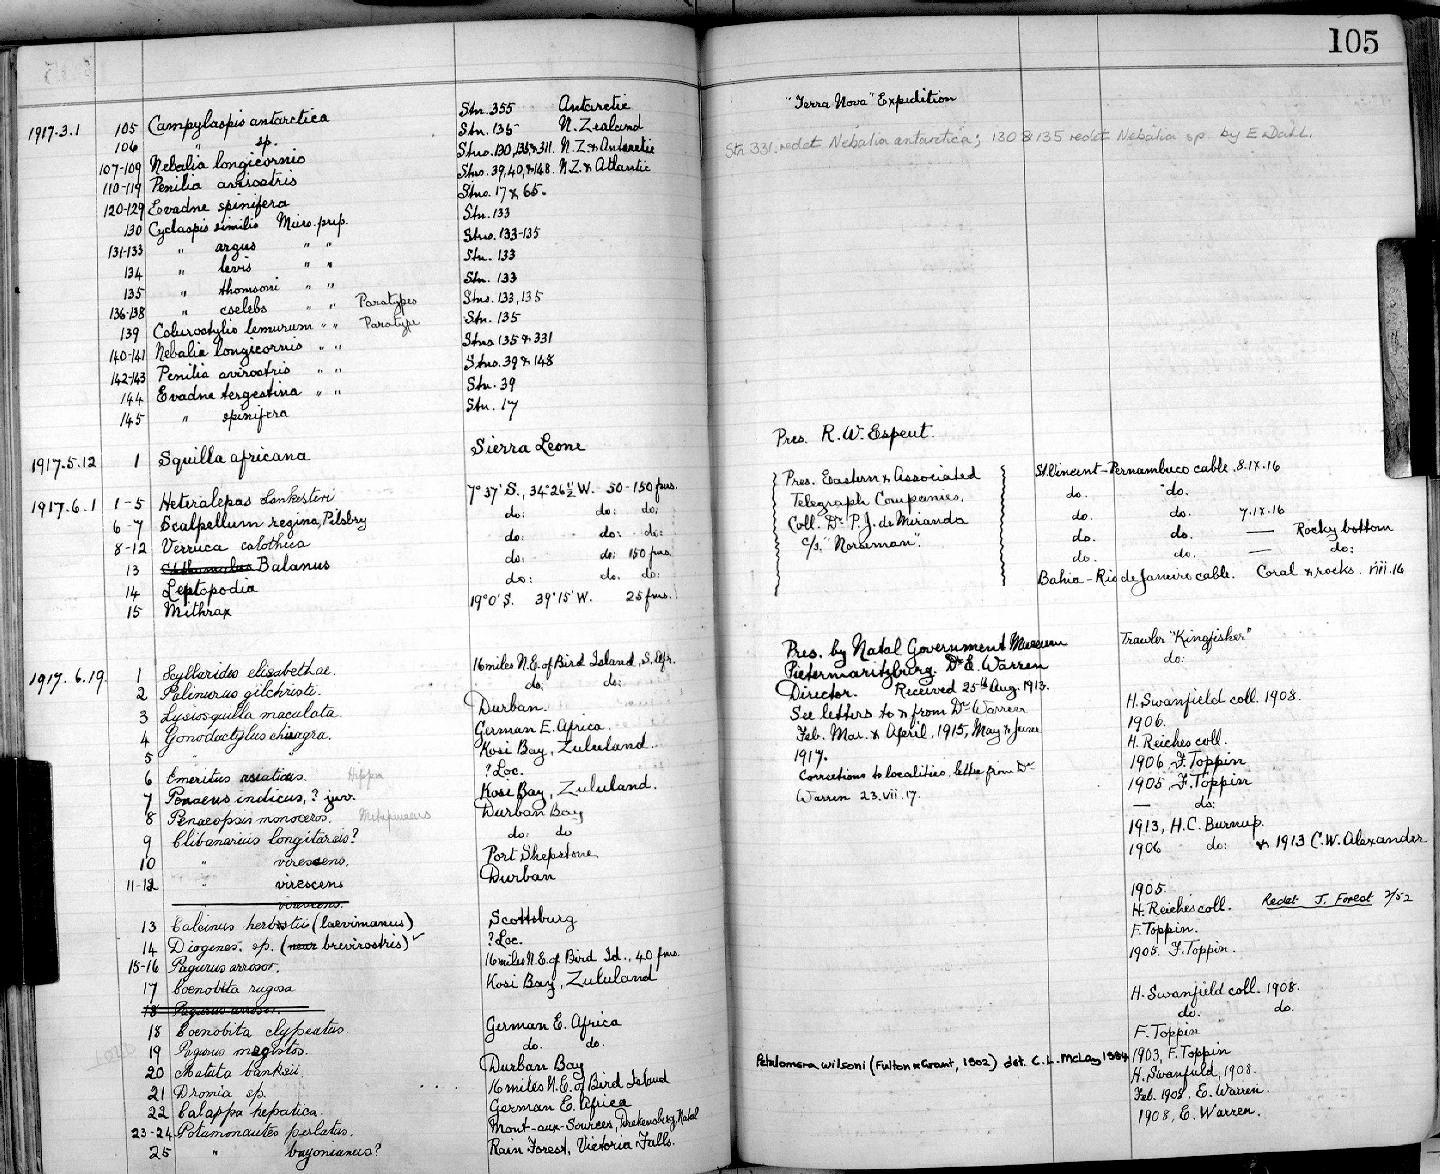 105
1917.3.1 105 Campylaspis antarctica Stn. 355 Antarctic "Terra Nova" Expedition
106 " sp. Stn. 135 N. Zealand
107-109 Nebalia longicornis Stns. 130, 135 & 311. N.Z. & Antarctic Stn 331. redet Nebalia antarctica; 130 & 135 redet Nebalia sp. by E. Dahl.
110-119 Penilia avirostris Stns. 39, 40, & 148. N.Z. & Atlantic
120-129 Evadne spinifera Stns. 17 & 65.
130 Cyclaspis similis Micro. prep. Stn. 133
131-133 " argus " " Stns. 133-135
134 " levis " " Stn. 133
135 " thomsoni " " Stn. 133
136-138 " coelebs " " Paratypes Stns. 133, 135
139 Colurostylis lemurum " " Paratype Stn. 135
140-141 Nebalia longicornis " " Stns 135 & 331
142-143 Penilia avirostris " " Stns. 39 & 148
144 Evadne tergestina " " Stn. 39
145 " spinifera Stn. 17
1917.5.12 1 Squilla africana Sierra Leone Pres. R. W. Espeut.
1917.6.1 1-5 Heteralepas Lankesteri 7° 37' S., 34° 26½ W. 50-150 fms. Pres. Eastern & Associated St Vincent-Pernambuco cable. 8.IX.16
6-7 Scalpellum regina, Pilsbry do: do: do: Telegraph Companies, do. do.
8-12 Verruca calothica do: do: do: Coll. Dr. P. J. de Miranda do. do. 7.IX.16
13 Balanus do: do: 150 fms. c/s. "Norseman". do. do. — Rocky bottom
14 Leptopodia do: do. do: do. do. — do:
15 Mithrax 19° 0' S. 39° 15' W. 25 fms. Bahia-Rio de Janeiro cable. Coral & rocks. VIII.16
1917.6.19. 1 Scyllarides elisabethae. 16 miles N.E. of Bird Island, S. Afr. Pres. by Natal Government Museum Trawler "Kingfisher"
2 Palinurus gilchristi. do: do: Pietermaritzburg. Dr E. Warren do:
3 Lysiosquilla maculata. Durban. Director. Received 25th Aug. 1913. H. Swanfield coll. 1908.
4 Gonodactylus chiragra. German E. Africa. See letters to & from Dr Warren 1906.
5 " Kosi Bay, Zululand. Feb. Mar. & April, 1915, May & June H. Reiches coll.
6 Emeritus asiaticus. Hippa ? Loc. 1917. 1906 F. Toppin
7 Penaeus indicus, ? juv. Kosi Bay, Zululand. Corrections to localities, letter from Dr 1905 F. Toppin
8 Penaeopsis monoceros. Metapenaeus Durban Bay Warren 23.vii.17. — do:
9 Clibanarius longitarsis? do: do 1913, H.C. Burnup.
10 " virescens. Port Shepstone 1906 do: & 1913 C.W. Alexander
11-12 " virescens Durban 1905.
virescens.
13 Calcinus herbstii (laevimanus) Scottsburg H. Reiches coll. Redet J. Forest 2/52
14 Diogenes. sp. (near brevirostris) ✓ ? Loc. F. Toppin.
15-16 Pagurus arrosor. 16 miles N.E. of Bird Id., 40 fms. 1905. F. Toppin.
17 Coenobita rugosa Kosi Bay, Zululand
18 Pagurus arrosor. H. Swanfield coll. 1908.
18 Coenobita clypeatus. German E. Africa do. do.
19 Pagurus megistos. do. do. F. Toppin
20 Matuta banksii Durban Bay Petalomera wilsoni (Fulton & Grant, 1902) det. C.L. McLay 1994 1903, F. Toppin
21 Dromia sp. 16 miles N.E. of Bird Island H. Swanfield, 1908.
22 Calappa hepatica. German E. Africa Feb. 1908, E. Warren.
23-24 Potamonautes perlatus. Mont-aux-Sources, Drakensberg, Natal 1908, E. Warren.
25 " bayonianus? Rain Forest, Victoria Falls.